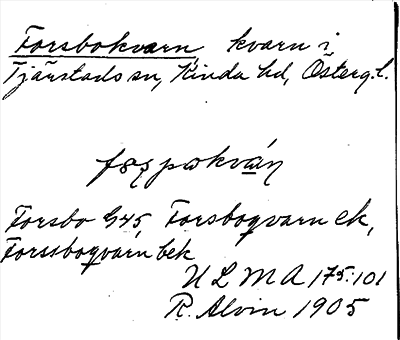 Forsbokvarn kvarn i
Tjärstads sn, Kinda hd, Österg.l.
Forsbo G45, Forsboqvarn ek,
Forssboqvarn bek
ULMA 175:101
R. Alvin 1905